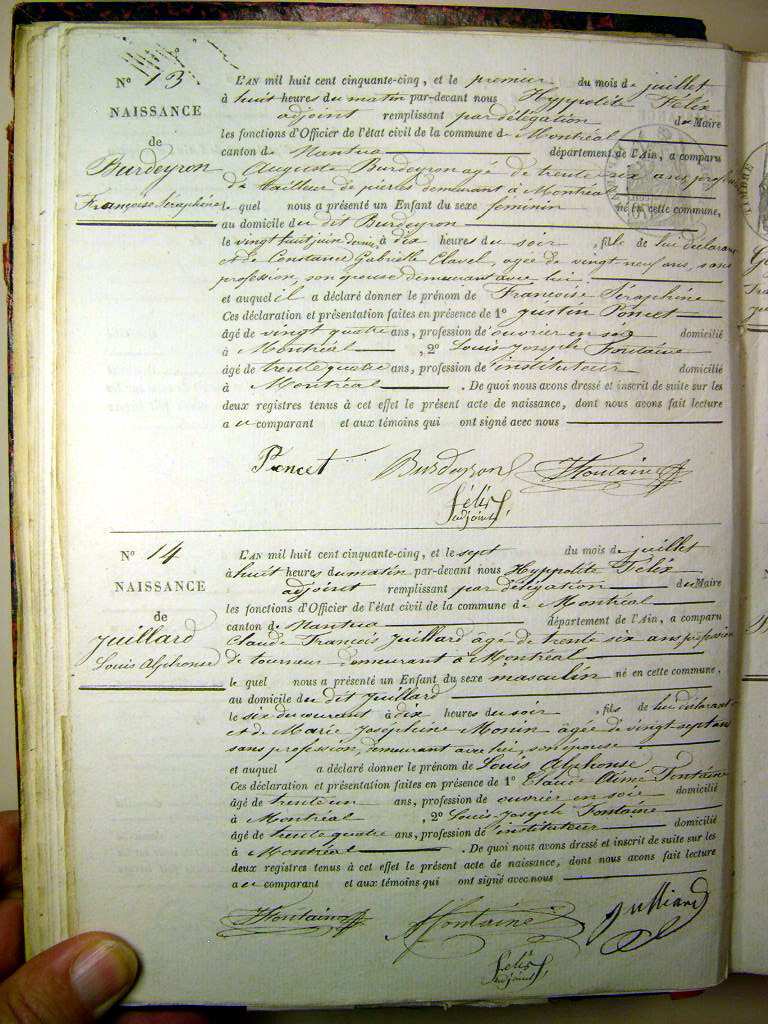 N° 13
NAISSANCE
de
Burdeyron
Françoise Séraphine
L'AN mil huit cent cinquante-cinq, et le premier du mois de juillet
à huit heures du matin par-devant nous Hyppolite Félix
adjoint remplissant par délégation du Maire
les fonctions d'Officier de l'état civil de la commune de Montréal
canton de Nantua département de l'Ain, a comparu
Auguste Burdeyron agé de trente six ans, profession
de tailleur de pierres demeurant à Montréal
le quel nous a présenté un Enfant du sexe féminin né en cette commune,
au domicile du dit Burdeyron
le vingt huit juin dernier à dix heures du soir, fille de lui déclarant
et de Constance Gabrielle Clavel, agée de vingt neuf ans, sans
profession, son épouse demeurant avec lui
et auquel il a déclaré donner le prénom de Françoise Séraphine
Ces déclaration et présentation faites en présence de 1° gustin Poncet
âgé de vingt quatre ans, profession de ouvrier en soie domicilié
à Montréal, 2° Louis Joseph Fontaine
âgé de trente quatre ans, profession de instituteur domicilié
à Montréal. De quoi nous avons dressé et inscrit de suite sur les
deux registres tenus à cet effet le présent acte de naissance, dont nous avons fait lecture
a u comparant et aux témoins qui ont signé avec nous
Poncet Burdeyron Fontaine
Félix
adjoint
N° 14
NAISSANCE
de
Juillard
Louis Alphonse
L'AN mil huit cent cinquante-cinq, et le sept du mois de juillet
à huit heures du matin par-devant nous Hyppolite Félix
adjoint remplissant par délégation du Maire
les fonctions d'Officier de l'état civil de la commune de Montréal
canton de Nantua département de l'Ain, a comparu
Claude François Juillard agé de trente six ans profession
de tourneur demeurant à Montréal
le quel nous a présenté un Enfant du sexe masculin né en cette commune,
au domicile du dit Juillard
le six du courant à dix heures du soir, fils de lui déclarant
et de Marie Joséphine Monin âgée de vingt sept ans
sans profession, demeurant avec lui, son épouse
et auquel a déclaré donner le prénom de Louis Alphonse
Ces déclaration et présentation faites en présence de 1° Claude Aimé Fontaine
âgé de trente un ans, profession de ouvrier en soie domicilié
à Montréal, 2° Louis Joseph Fontaine
âgé de trente quatre ans, profession de instituteur domicilié
à Montréal. De quoi nous avons dressé et inscrit de suite sur les
deux registres tenus à cet effet le présent acte de naissance, dont nous avons fait lecture
a u comparant et aux témoins qui ont signé avec nous
Fontaine Fontaine Julliard
Félix
adjoint
TIMBRE